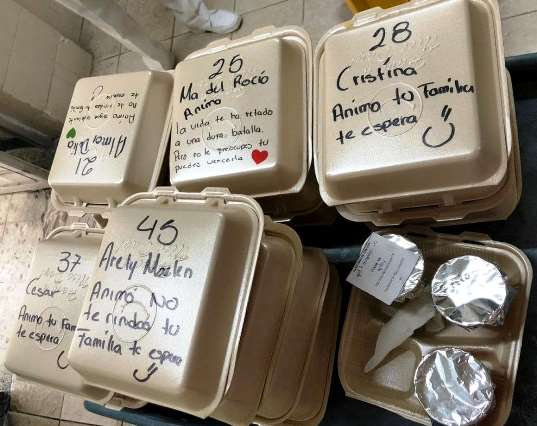 25
Ma del Rocío
Animo
la vida te ha retado
a una dura batalla.
Pero no te preocupes tu
puedes vencerla
28
Cristina
Animo tu Familia
te espera
21
Alma Delia
Animo
no te rindas tu
te espera
37
Cesar
Animo tu Fam
te espera
45
Arely
Animo No
te rindas tu
Familia te espera